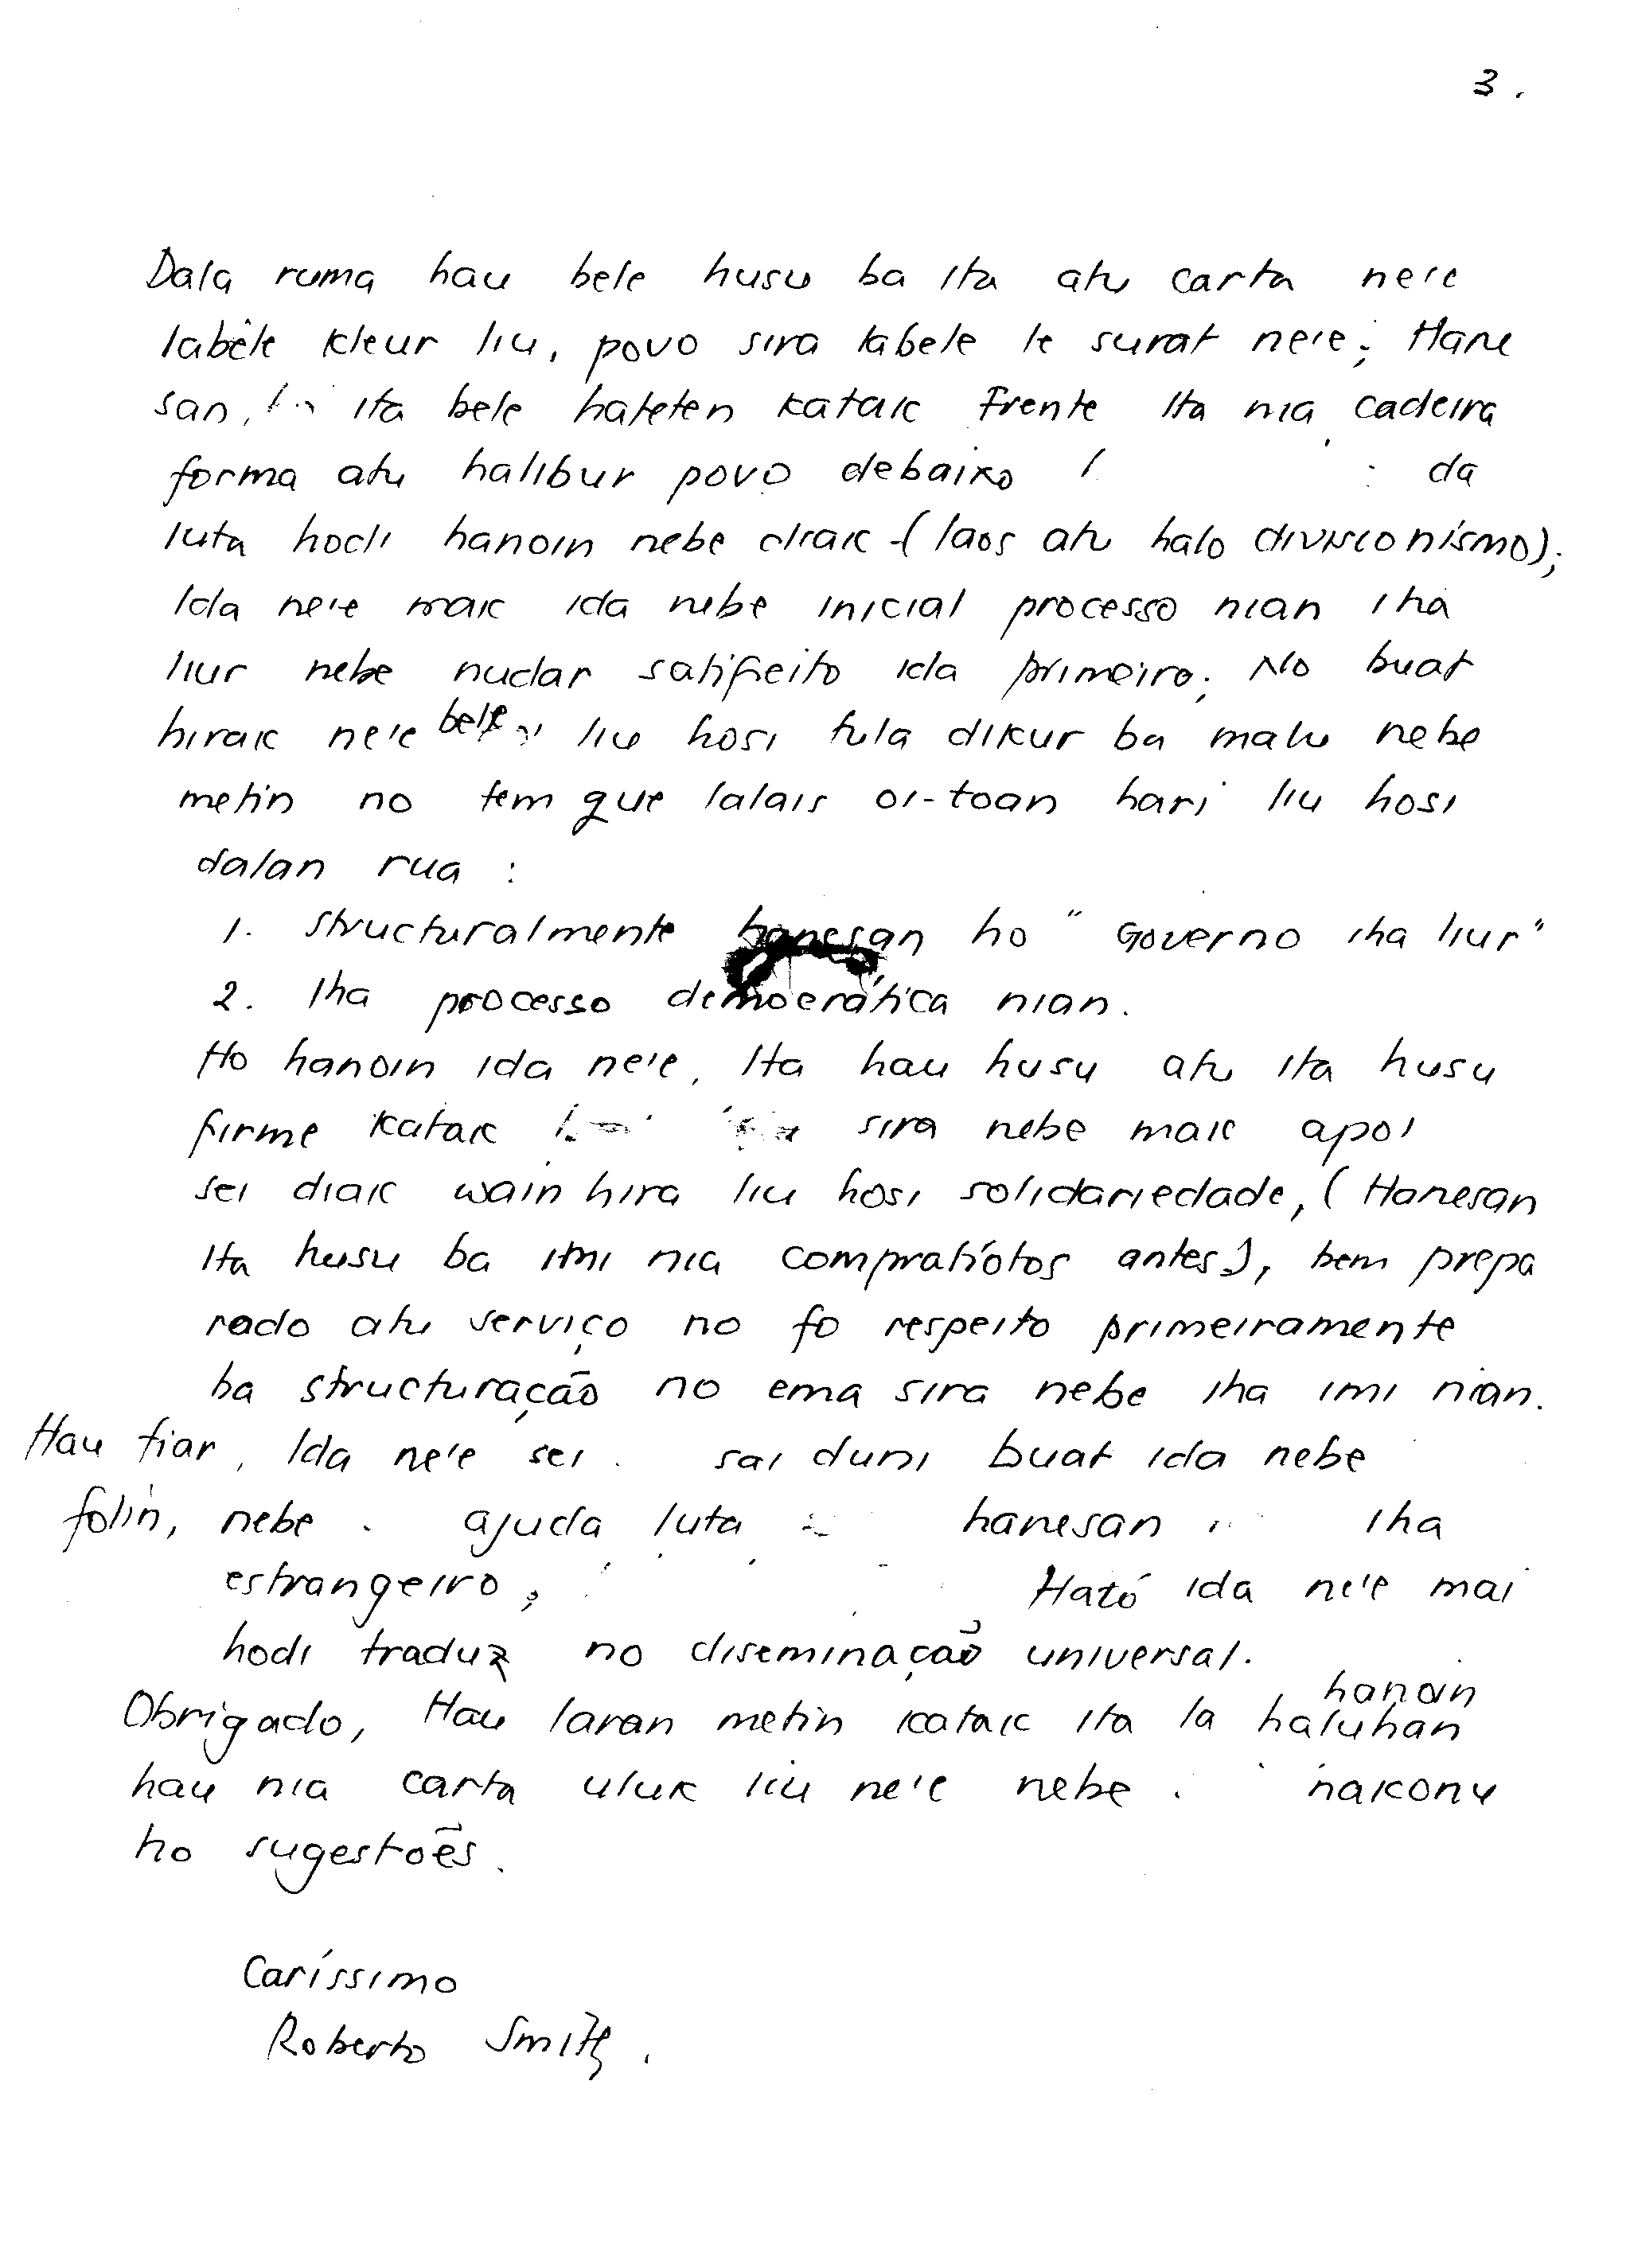 3.
Dala ruma hau bele husu ba Ita atu carta ne'e
labêle kleur liu, povo sira labele le surat ne'e; Hane
san, Ita bele hateten katak Frente Ita nia cadeira
forma atu halibur povo debaixo da
luta hodi hanoin nebe diak (laos atu halo divisionismo);
Ida ne'e maik ida nebe inicial processo nian iha
liur nebe nudar satifieito ida primeiro; No buat
hirak ne'e bele liu hosi tula dikur ba malu nebe
metin no tem que lalais oi-toan hari liu hosi
dalan rua :
1. Structuralmente hanesan ho "Governo iha liur"
2. Iha processo democrática nian.
Ho hanoin ida ne'e, Ita hau husu atu ita husu
firme katak sira nebe maik apoi
sei diak wain hira liu hosi solidariedade, (Hanesan
Ita husu ba imi nia compratíotos antes), bem prepa
rado atu serviço no fo respeito primeiramente
ba structuração no ema sira nebe iha imi nian.
Hau fiar, Ida ne'e sei sai duni buat ida nebe
folin, nebe ajuda luta hanesan iha
estrangeiro, Ható ida ne'e mai
hodi traduz no diseminação universal.
hanoin
Obrigado, Hau laran metin katak Ita la haluhan
hau nia carta uluk liu ne'e nebe nakonu
ho sugestões.
Caríssimo
Roberto Smith.